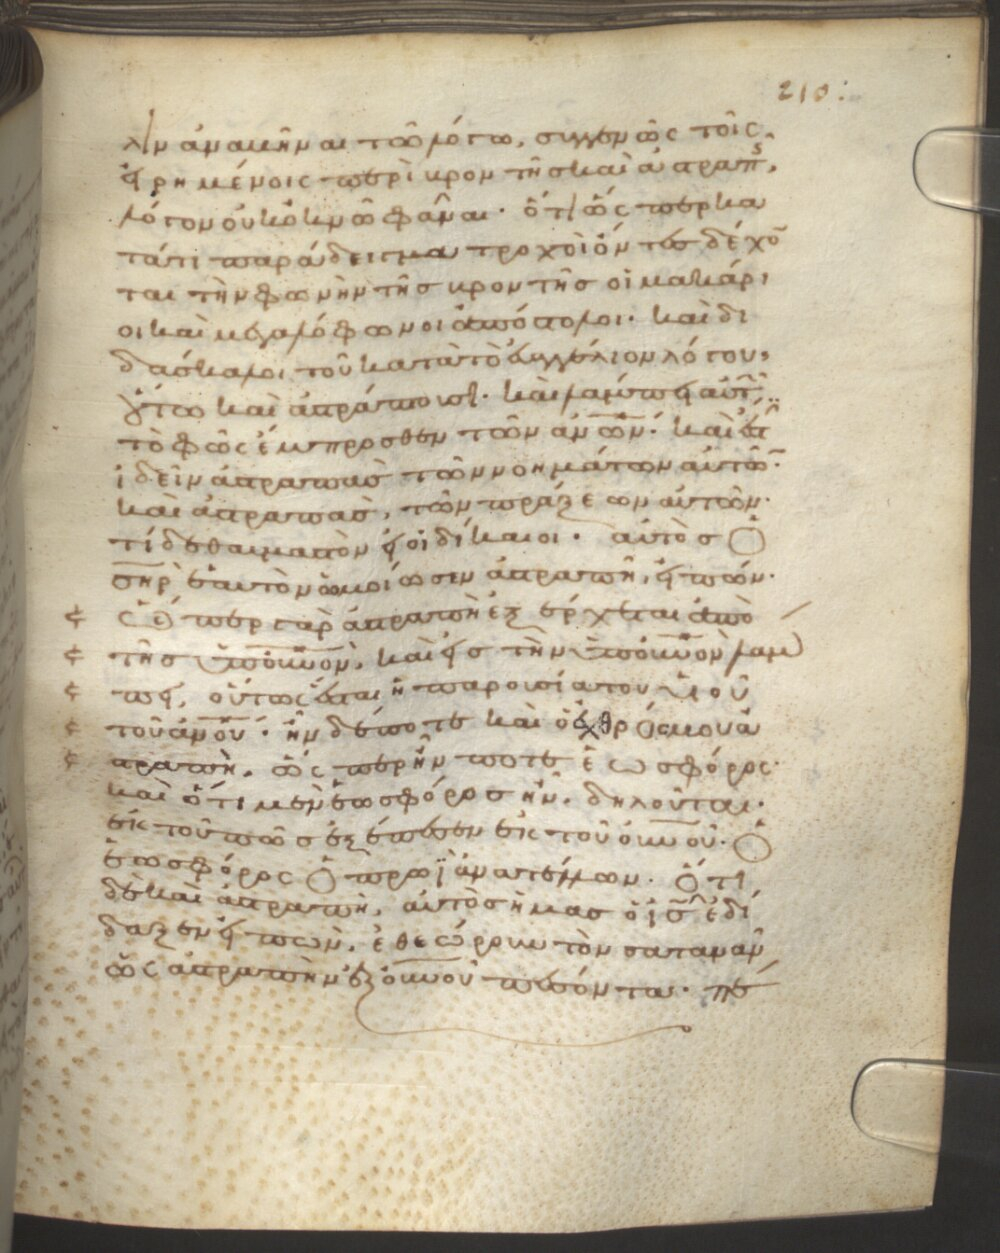 210:
λιν ἀναμῆναι τῶ λόγω, συγγενῶς τοῖς
εἰρημένοις περὶ βροντῆς καὶ ἀστραπῆς
λόγον οὐκ ὀκνῶ φᾶναι· ὅτι ὥσπερ κα
τά τι παράδειγμα τροχοὶ ὄντες δέχον
ται τὴν φωνὴν τῆς βροντῆς οἱ μακάρι
οι καὶ μεγαλόφωνοι ἀπόστολοι· καὶ δι
δάσκαλοι τοῦ κατὰ τὸ εὐαγγέλιον λόγου,
οὕτω καὶ ἀστράπτουσι· καὶ λάμπει αὐτῶν
τὸ φῶς ἔμπροσθεν τῶν ἀνων· καὶ ἔστιν
ἰδεῖν ἀστραπὰς τῶν νοημάτων αὐτῶν·
καὶ ἀστραπὰς, τῶν πράξεων αὐτῶν·
τί δὲ θαυμαστὸν εἰ οἱ δίκαιοι· αὐτὸς ὁ
σηρ ἑαυτὸν ὡμοίωσεν ἀστραπῆ, εἰπών·
ὥσπερ γὰρ ἀστραπὴ ἐξέρχεται ἀπὸ
τῆς
οὕτως ἔσται ἡ παρουσία τοῦ υἱοῦ
τοῦ ἀνου· ἦν δέ ποτε καὶ ὁ ἐχθρός μου ἀ
στραπὴ, ὥσπερ ἦν ποτε ἑωσφόρος·
καὶ ὅτι μὲν ἑωσφόρος ἦν, δηλοῦται·
ἐκ τοῦ πῶς ἐξέπεσεν ἐκ τοῦ οὐνου· ὁ
ἑωσφόρος ὁ πρωῒ ἀνατέλλων· ὅτι
δὲ καὶ ἀστραπὴ, αὐτὸς ἡμᾶς ὁ ις ἐδί
δαξεν εἰπὼν, ἐθεώρουν τὸν σατανᾶν
ὡς ἀστραπὴν ἐξ οὐνου πεσόντα·